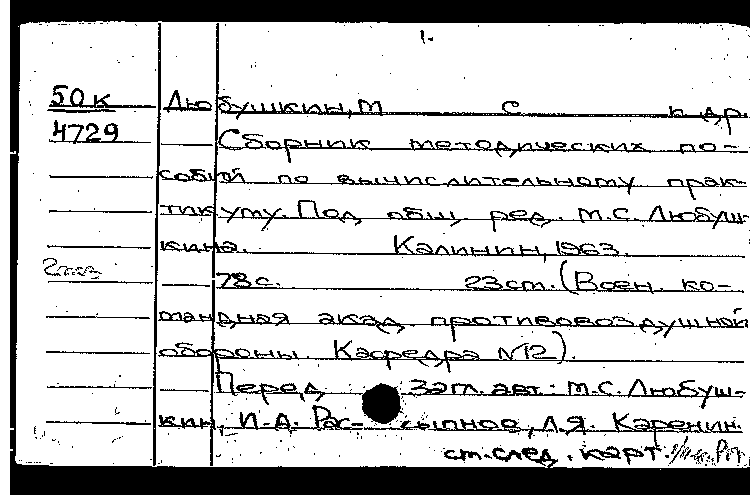 1.
50к Любушкин, М С и др.
4729 Сборник методических по-
собий по вычислительному прак-
тикуму. Под общ. ред. М.С. Любуш-
кина. Калинин, 1963.
2 экз 78 с. 23 см. (Воен. ко-
мандная акад. противовоздушной
обороны. Кафедра №12).
Перед загл. авт.: М.С. Любуш-
кин, И.А. Рас- сыпное, Л.Я. Каренин.
см. след. карт.